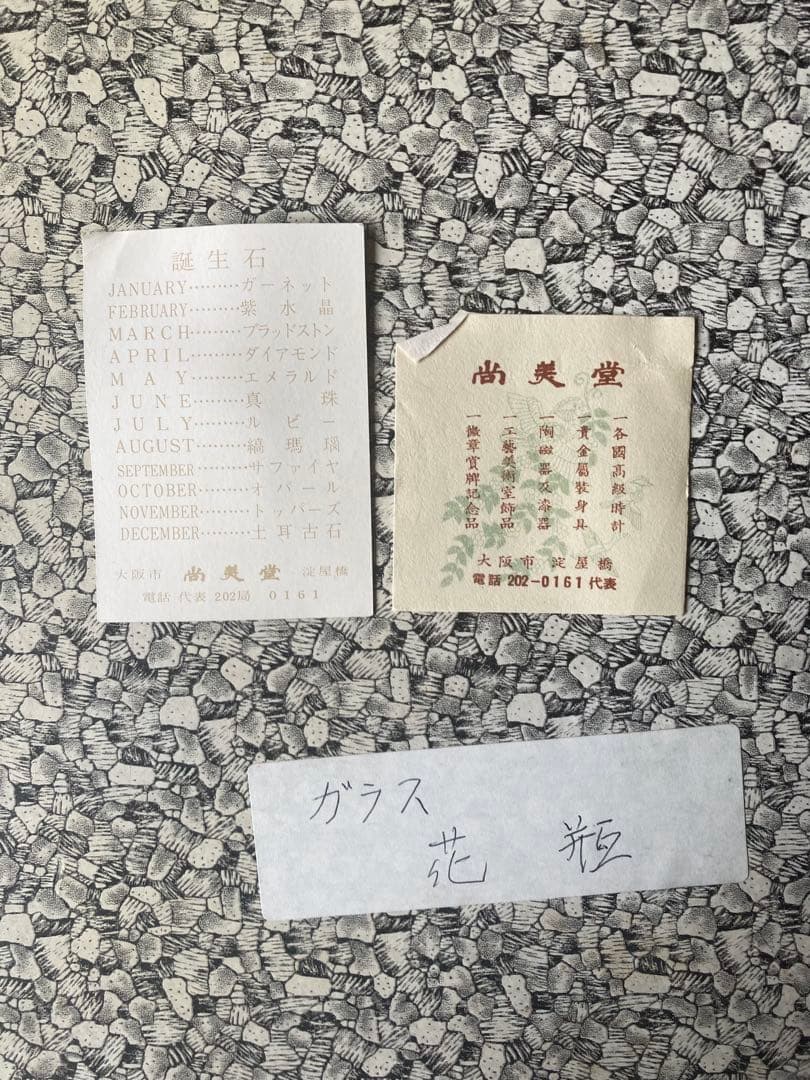 誕生石
JANUARY………ガーネット
FEBRUARY………紫水晶
MARCH………ブラッドストン
APRIL………ダイアモンド
MAY………エメラルド
JUNE………真珠
JULY………ルビー
AUGUST………縞瑪瑙
SEPTEMBER………サファイヤ
OCTOBER………オパール
NOVEMBER………トッパーズ
DECEMBER………土耳古石
大阪市 尚美堂 淀屋橋
電話 代表 202局 0161
尚美堂
一各國高級時計
一貴金屬装身具
一陶磁器及漆器
一工藝美術室飾品
一徽章賞牌記念品
大阪市 淀屋橋
電話 202-0161 代表
ガラス
花瓶